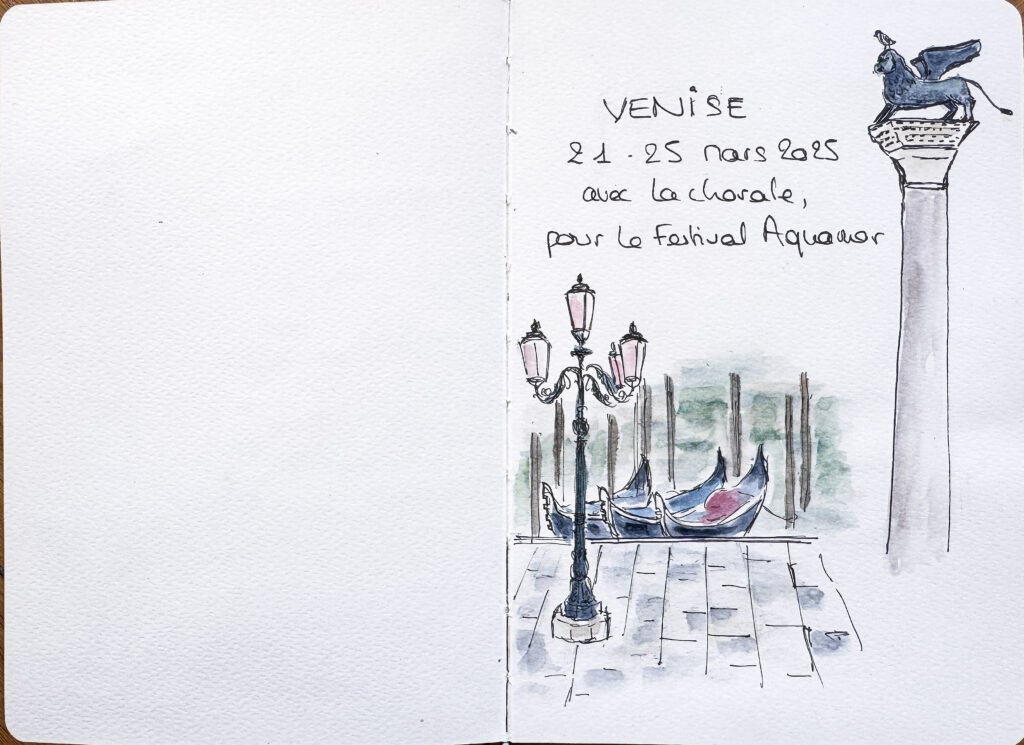 VENISE
21 - 25 mars 2025
avec la chorale,
pour le Festival Aquamor